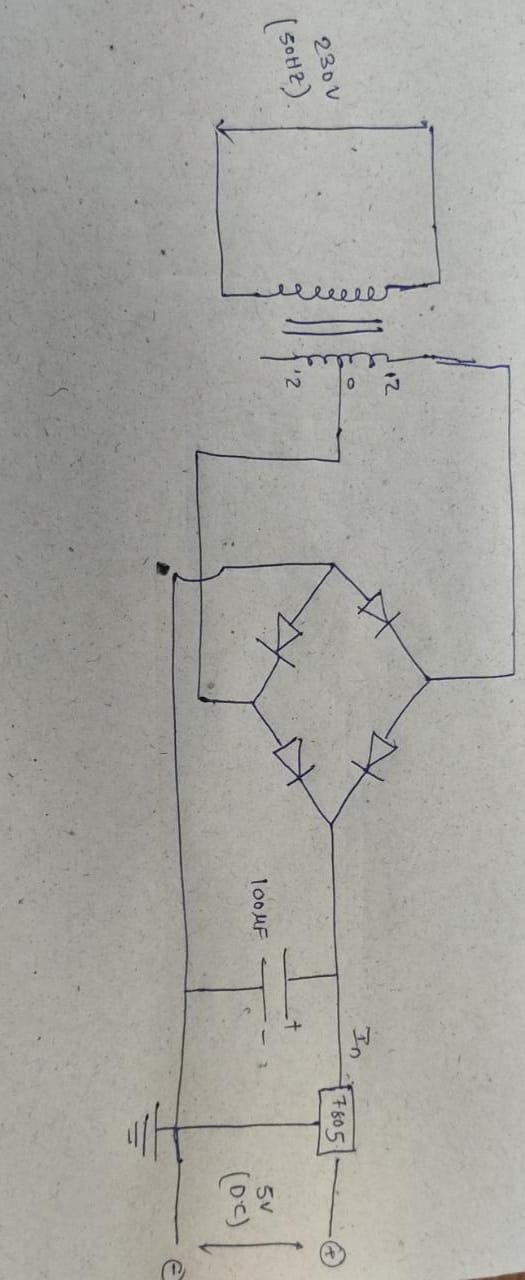 230V
(50HZ)
12
0
12
100μF
+
-
In
7805
5V
(D.C)
+
-